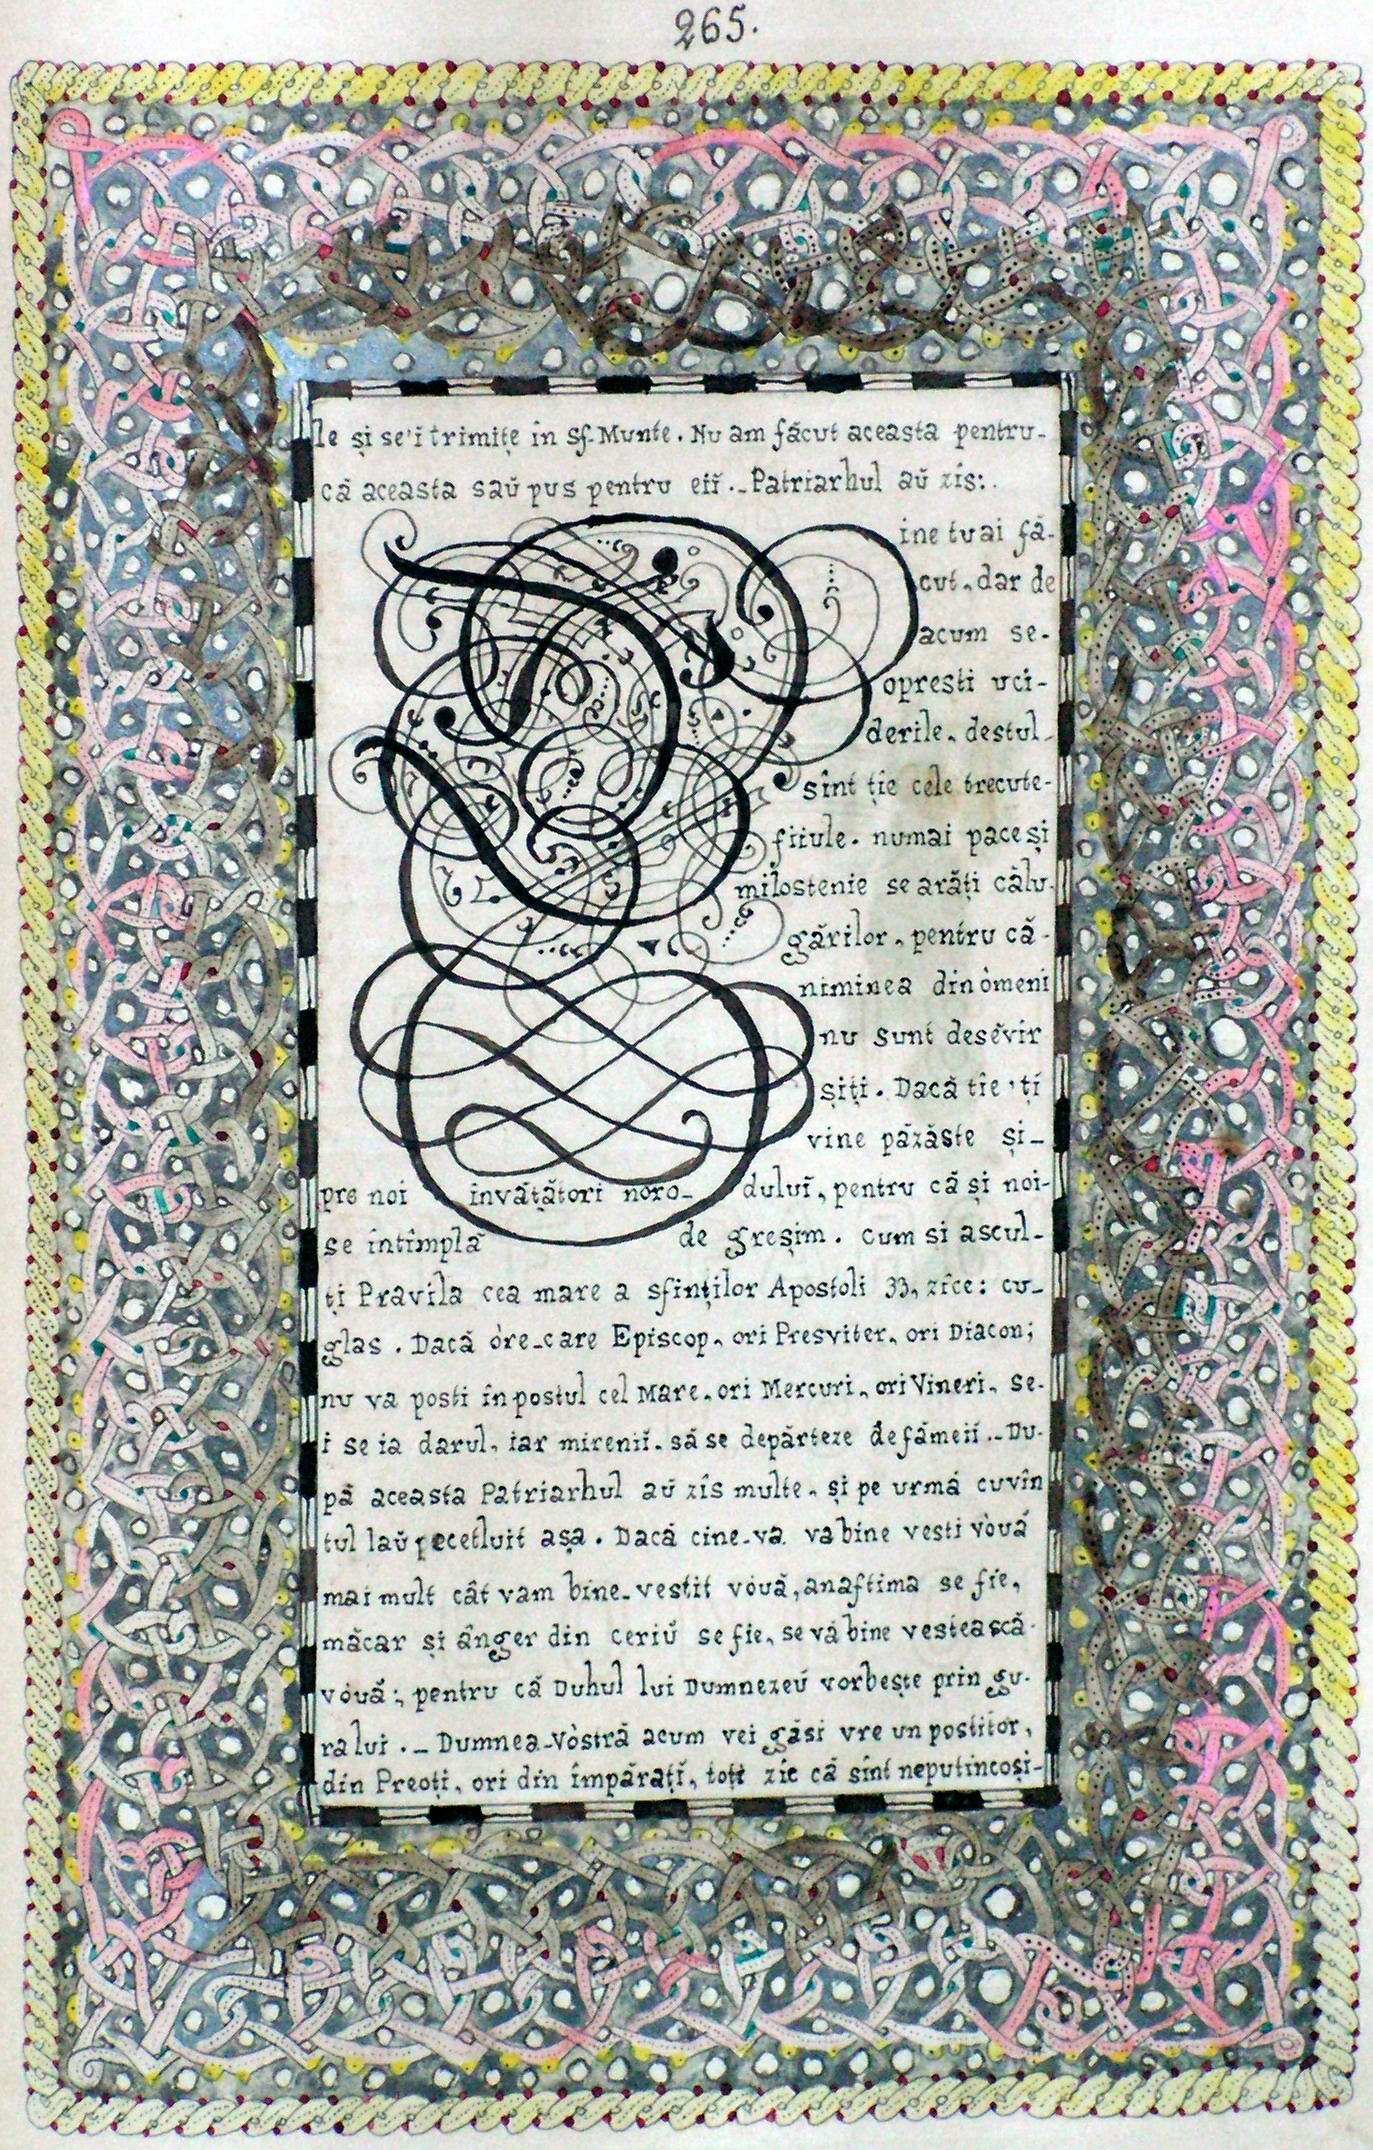 265.
le și se'i trimițe in sf. Munte. Nu am făcut aceasta pentru-
că aceasta saŭ pus pentru eiĭ._Patriarhul aŭ zis:.
ine tu ai fă-
cut, dar de
acum se-
opresti uci-
derile, destul_
sînt ție cele trecute-
fiiule. numai pace și
milostenie se arăți călu-
gărilor, pentru că-
niminea din òmeni
nu sunt desĕvir
șiți. Dacă tie 'ți
vine păzăște și_
pre noi invățători noro_ duluĭ, pentru că și noi-
se intîmplă de greșim. cum si ascul_
ți Pravila cea mare a sfinților Apostoli 33, zîce: cu_
glas. Dacă òre_care Episcop, ori Presviter, ori Diacon;
nu va posti în postul cel Mare, ori Mercuri, ori Vineri, se-
i se ia darul, iar mireniĭ, să se depărteze de fămeiĭ._Du-
pă aceasta Patriarhul aŭ zîs multe, și pe urmă cuvîn
tul laŭ pecetluit așa. Dacă cine-va va bine vesti vòuă
mai mult cât vam bine-vestit vouă, anaftima se fie,
măcar și ânger din ceriŭ se fie, se vă bine vestească-
vouă:, pentru că Duhul lui Dumnezeŭ vorbește prin gu-
ra lui._Dumnea-Vòstră acum vei găsi vre un postitor,
din Preoți, ori din împărațĭ, toți zic că sînt neputincoși-